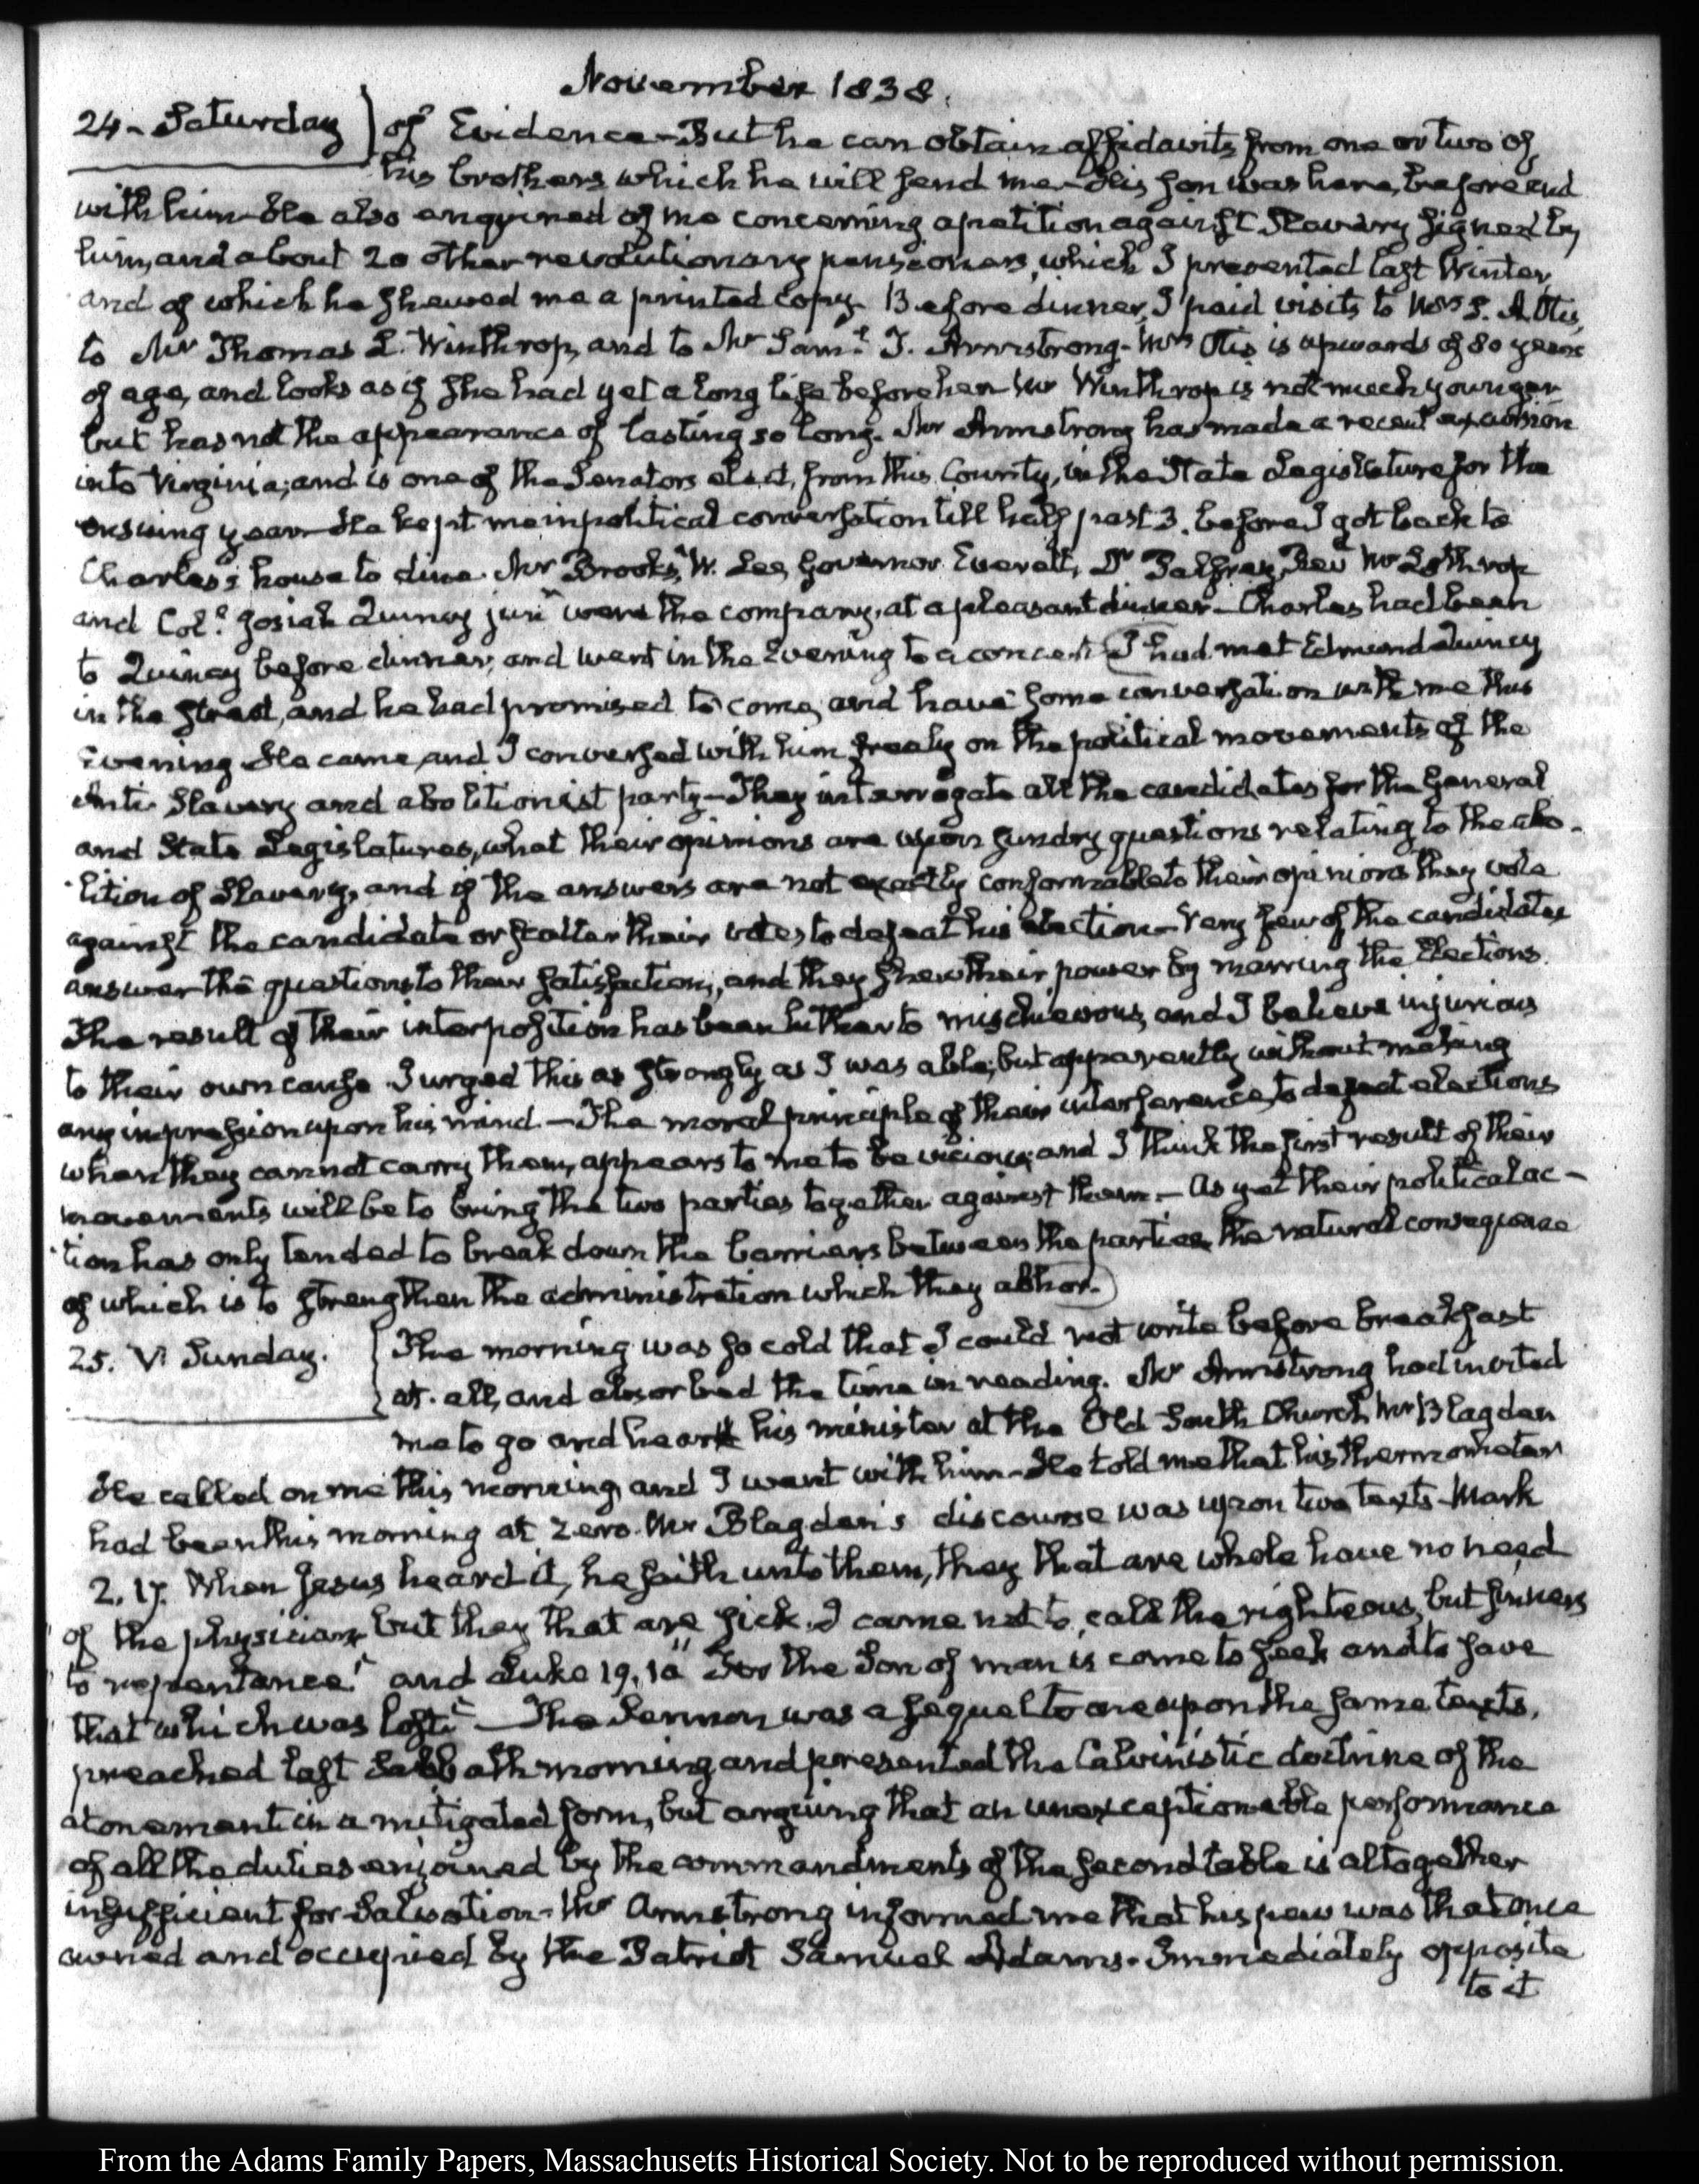 November 1838.
24 - Saturday of Evidence - But he can obtain affidavits from one or two of
his brothers which he will send me - His son was here, before and
with him - He also enquired of me concerning a petition against Slavery signed by
him, and about 20 other revolutionary pensioners, which I presented last Winter,
and of which he shewed me a printed copy. Before dinner, I paid visits to Mrs S. A. Otis,
to Mr Thomas L. Winthrop, and to Mr Saml T. Armstrong - Mrs Otis is upwards of 80 years
of age, and looks as if she had yet a long life before her Mr Winthrop is not much younger
but has not the appearance of lasting so long. Mr Armstrong has made a recent excursion
into Virginia; and is one of the Senators elect, from this County, in the State Legislature for the
ensuing year - He kept me in political conversation till half past 3. before I got back to
Charles's house to dine. Mr Brooks, W. Lee, Governor Everett, Dr Palfrey, Revd Mr Lothrop
and Col. Josiah Quincy junr were the company, at a pleasant dinner - Charles had been
to Quincy before dinner, and went in the Evening to a concert. I had met Edmund Quincy
in the street, and he had promised to come, and have some conversation with me this
Evening He came, and I conversed with him freely on the political movements of the
Anti Slavery and abolitionist party - They interrogate all the candidates for the General
and State Legislatures, what their opinions are upon sundry questions relating to the abo-
lition of Slavery, and if the answers are not exactly conformable to their opinions they vote
against the candidate or scatter their votes to defeat his election - Very few of the candidates
answer the questions to their satisfaction, and they shew their power by marring the Elections.
The result of their interposition has been hitherto mischievous, and I believe injurious
to their own cause. I urged this as strongly as I was able; but apparently without making
any impression upon his mind. - The moral principle of their interference, to defeat elections
when they cannot carry them, appears to me to be vicious; and I think the first result of their
movements will be to bring the two parties together against them. - As yet their political ac-
tion has only tended to break down the barriers between the parties, the natural consequence
of which is to strengthen the administration which they abhor.
25. VI. Sunday. The morning was so cold that I could not write before breakfast
at all, and absorbed the time in reading. Mr Armstrong had invited
me to go and hear his minister at the Old South Church Mr Blagden
He called on me this morning, and I went with him - He told me that his thermometer
had been this morning at zero. Mr Blagden's discourse was upon two texts - Mark
2. 17. When Jesus heard it, he saith unto them, they that are whole have no need
of the physician, but they that are sick. I came not to call the righteous, but sinners
to repentance." and Luke 19. 10 "For the Son of man is come to seek and to save
that which was lost" - The Sermon was a sequel to one upon the same texts,
preached last Sabbath morning and presented the Calvinistic doctrine of the
atonement in a mitigated form, but arguing that an unexceptionable performance
of all the duties enjoined by the commandments of the second table is altogether
insufficient for Salvation - Mr Armstrong informed me that his pew was that once
owned and occupied by the Patriot Samuel Adams. Immediately opposite
to it
From the Adams Family Papers, Massachusetts Historical Society. Not to be reproduced without permission.